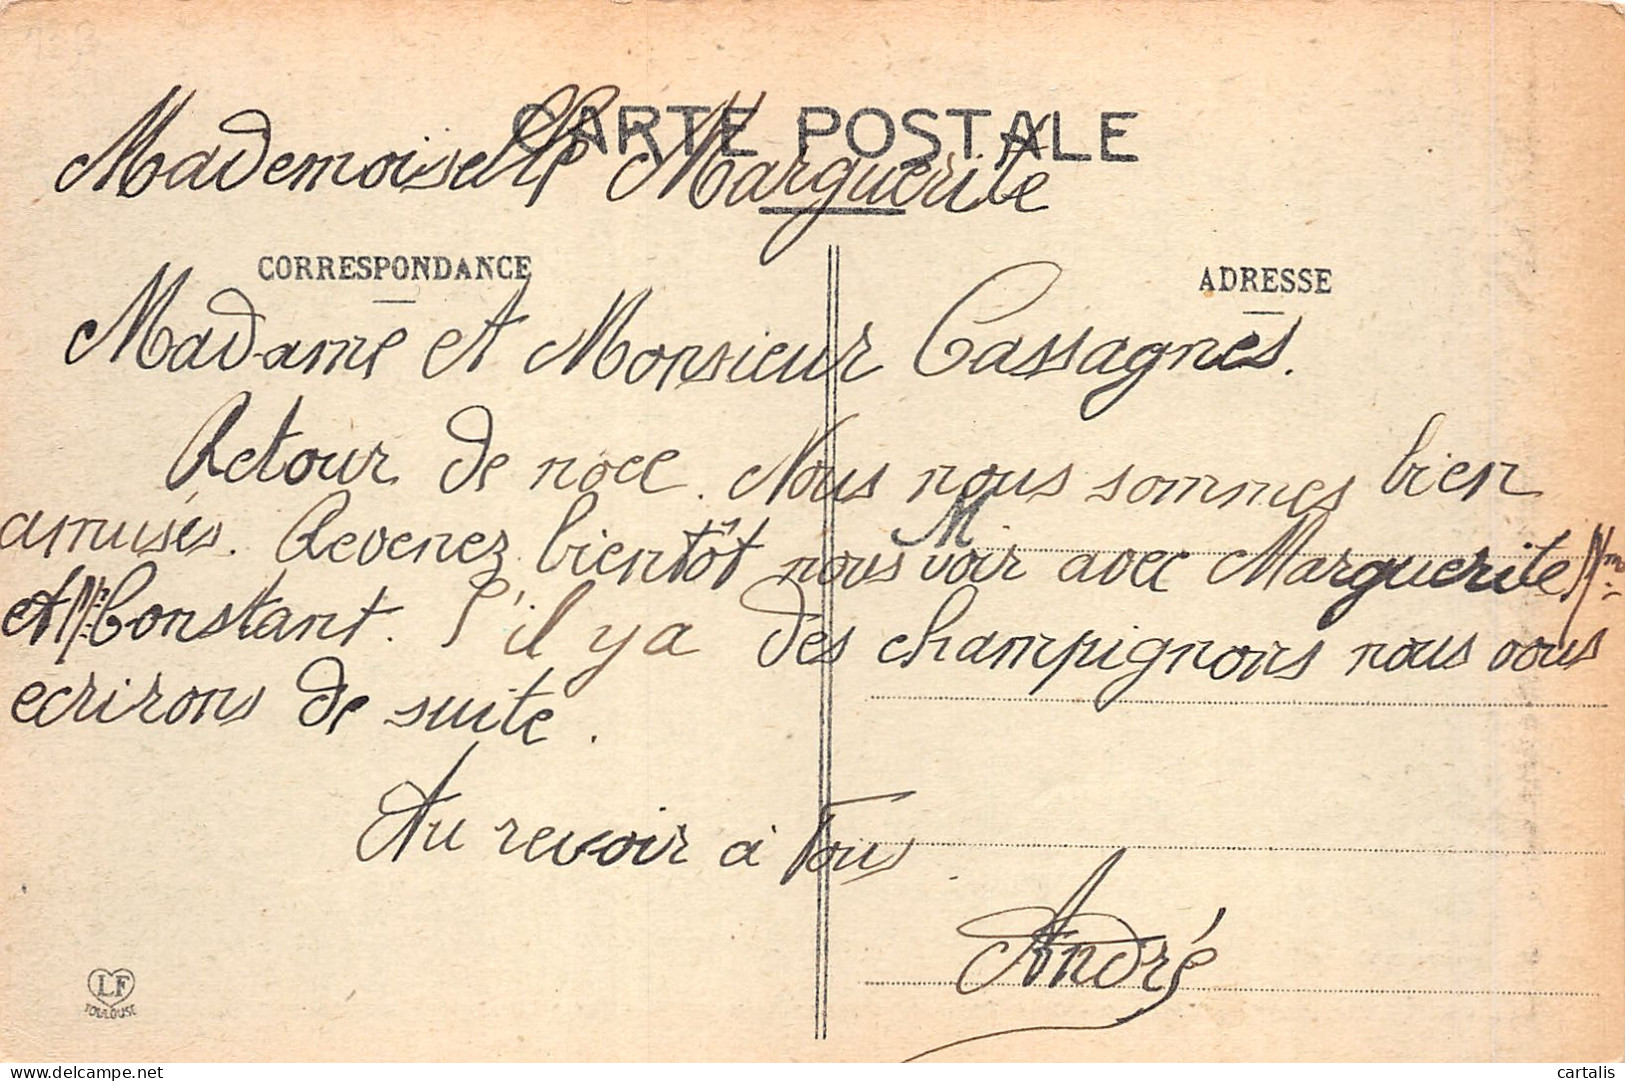 CARTE POSTALE
Mademoiselle Marguerite
CORRESPONDANCE
ADRESSE
Madame et Monsieur Cassagnes.
Retour de noce. Nous nous sommes bien
amusés. Revenez bientôt nous voir avec Marguerite Mme
et Mr Constant. S'il y a des champignons nous vous
ecrirons de suite.
Au revoir à Tous
André
LF
TOULOUSE
www.delcampe.net
cartalis